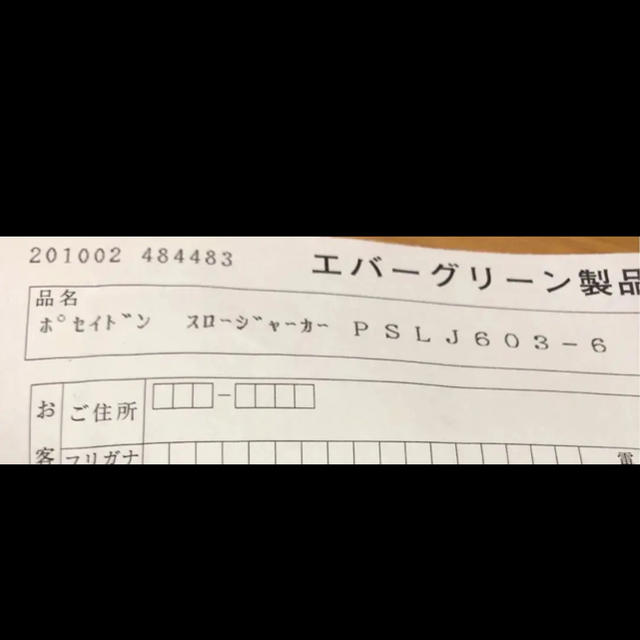 201002 484483 エバーグリーン製品
品名
ﾎﾟｾｲﾄﾞﾝ ｽﾛｰｼﾞｬｰｶｰ ＰＳＬＪ６０３－６
お ご住所
客 フリガナ 電